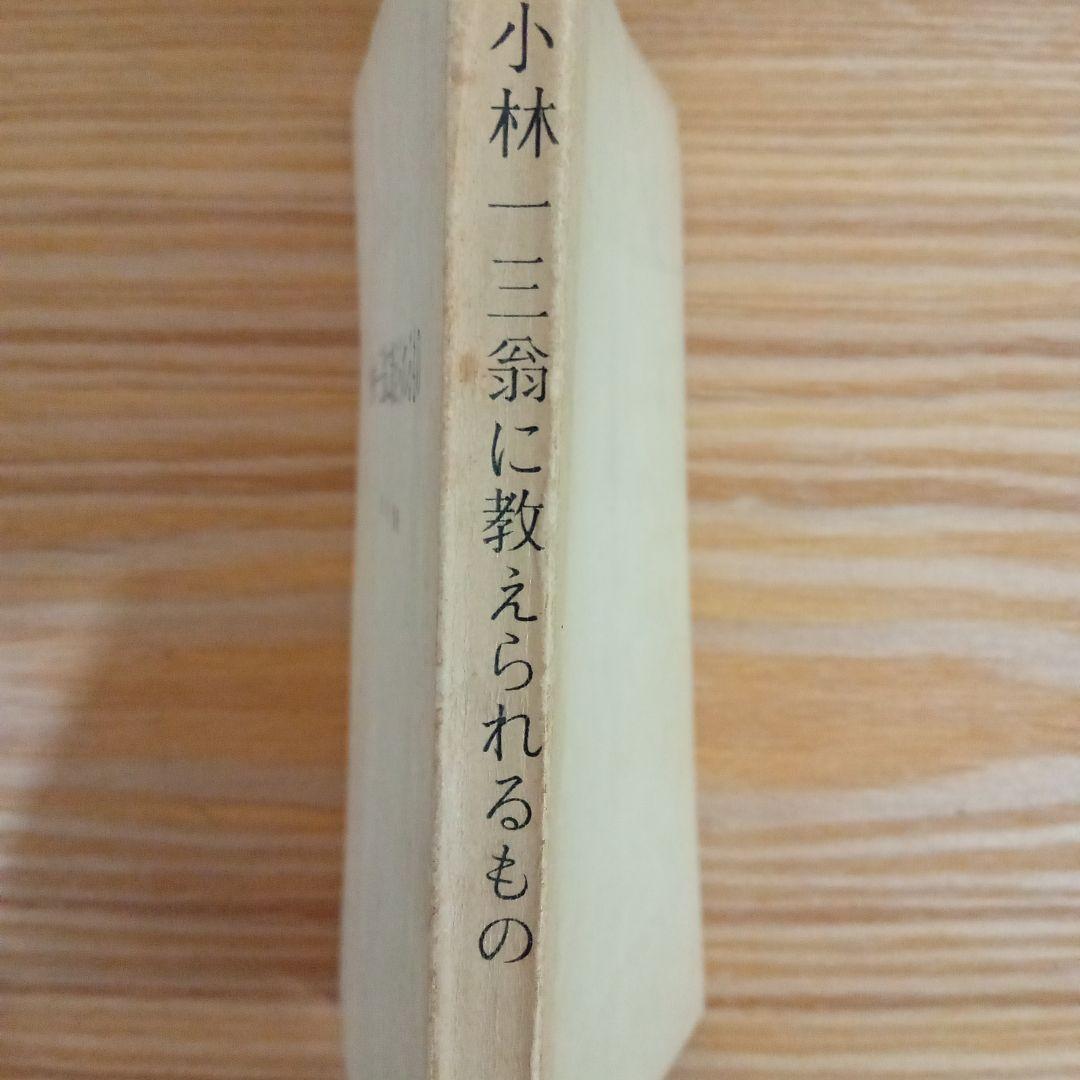 小林一三翁に教えられるもの